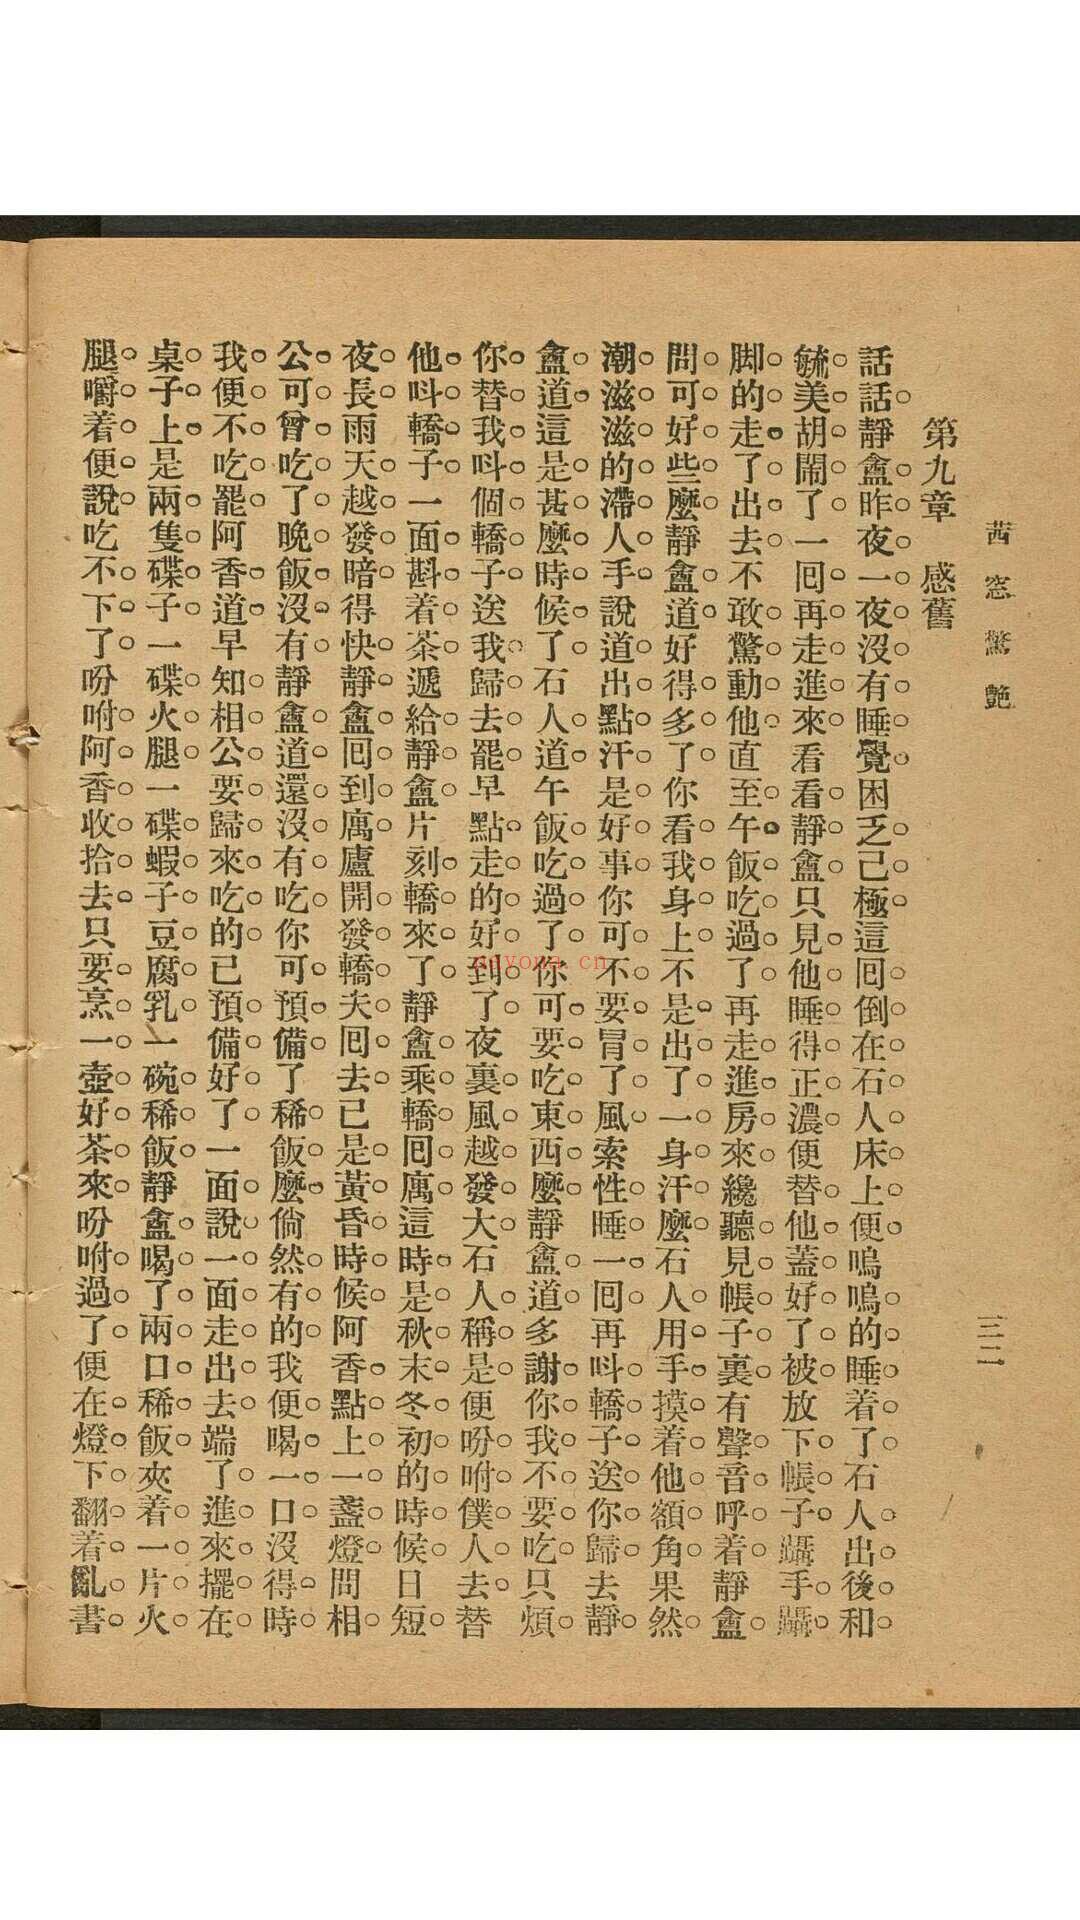 茜窓驚艷
三二
第九章　感舊
話話靜盦昨夜一夜沒有睡覺困乏已極這囘倒在石人床上便嗚嗚的睡着了石人出後和
毓美胡鬧了一囘再走進來看看靜盦只見他睡得正濃便替他蓋好了被放下帳子躡手躡
脚的走了出去不敢驚動他直至午飯吃過了再走進房來纔聽見帳子裏有聲音呼着靜盦
問可好些麼靜盦道好得多了你看我身上不是出了一身汗麼石人用手摸着他額角果然
潮滋滋的滯人手說道出點汗是好事你可不要冒了風索性睡一囘再呌轎子送你歸去靜
盦道這是甚麼時候了石人道午飯吃過了你可要吃東西麼靜盦道多謝你我不要吃只煩
你替我呌個轎子送我歸去罷早點走的好到了夜裏風越發大石人稱是便吩咐僕人去替
他呌轎子一面斟着茶遞給靜盦片刻轎來了靜盦乘轎囘寓這時是秋末冬初的時候日短
夜長雨天越發暗得快靜盦囘到寓廬開發轎夫囘去已是黃昏時候阿香點上一盞燈問相
公可曾吃了晚飯沒有靜盦道還沒有吃你可預備了稀飯麼倘然有的我便喝一口沒得時
我便不吃罷阿香道早知相公要歸來吃的已預備好了一面說一面走出去端了進來擺在
桌子上是兩隻碟子一碟火腿一碟蝦子豆腐乳一碗稀飯靜盦喝了兩口稀飯夾着一片火
腿嚼着便說吃不下了吩咐阿香收拾去只要烹一壺好茶來吩咐過了便在燈下翻着亂書
nayona.cn